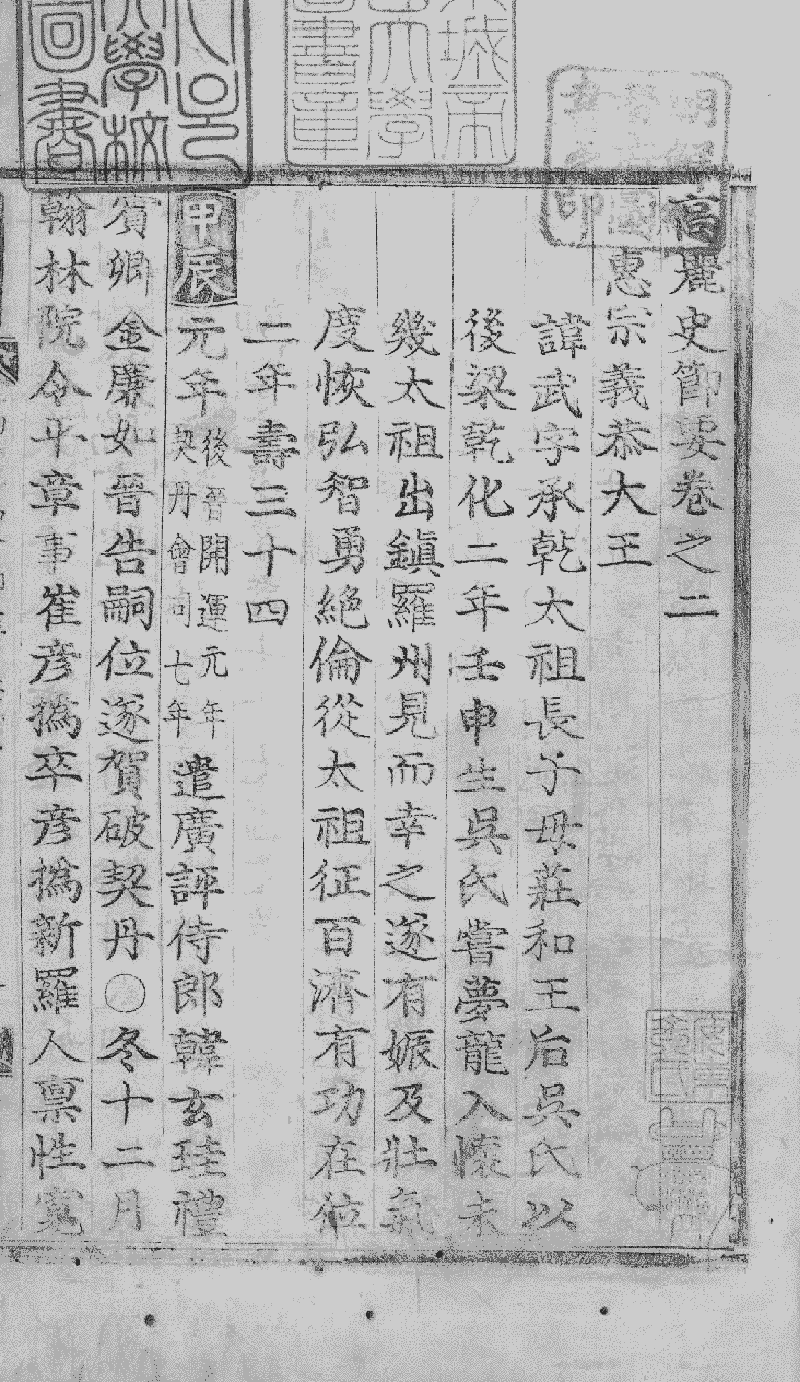 高麗史節要卷之二
惠宗義恭大王
諱武字承乾太祖長子母莊和王后吳氏以
後梁乾化二年壬申生吳氏嘗夢龍入懷未
幾太祖出鎭羅州見而幸之遂有娠及壯氣
度恢弘智勇絶倫從太祖征百濟有功在位
二年壽三十四
甲辰元年後晉開運元年契丹會同七年遣廣評侍郎韓玄珪禮
賓卿金廉如晉告嗣位遂賀破契丹○冬十二月
翰林院令平章事崔彦撝卒彦撝新羅人禀性寬